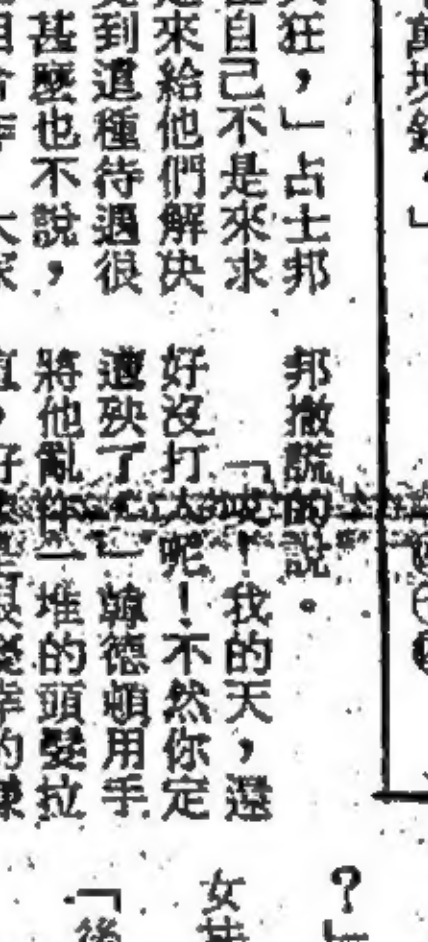 萬塊錢，」
狂，」占士邦
自己不是來求
來給他們解决
到這種待遇很
甚麼也不說，
大家
邦撒謊的說。
「！我的天，還
好沒打人呢！不然你定
遭殃了。」韓德頓用手
將他亂作一堆的頭髮拉
的
？」
女
「後